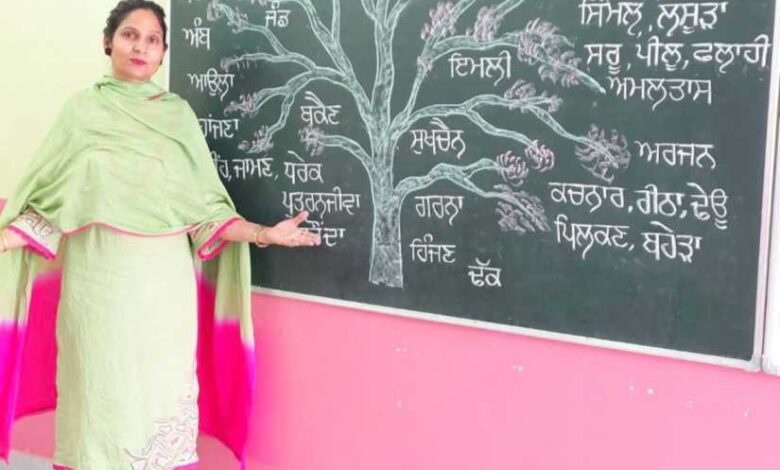 ਜੰਡ
ਅੰਬ
ਆਉਲਾ
ਬਕੈਣ
ਜਾਮਣ, ਧਰੇਕ
ਪੁਤਰਨਜੀਵਾ
ਇਮਲੀ
ਸੁਖਚੈਨ
ਗਰਨਾ
ਹਿੰਜਣ
ਢੱਕ
ਸਿੰਮਲ, ਲਸੂੜਾ
ਸਰੂ, ਪੀਲੂ, ਫਲਾਹੀ
ਅਮਲਤਾਸ
ਅਰਜਨ
ਕਚਨਾਰ, ਰੀਠਾ, ਢੇਊ
ਪਿਲਕਣ, ਬਹੇੜਾ